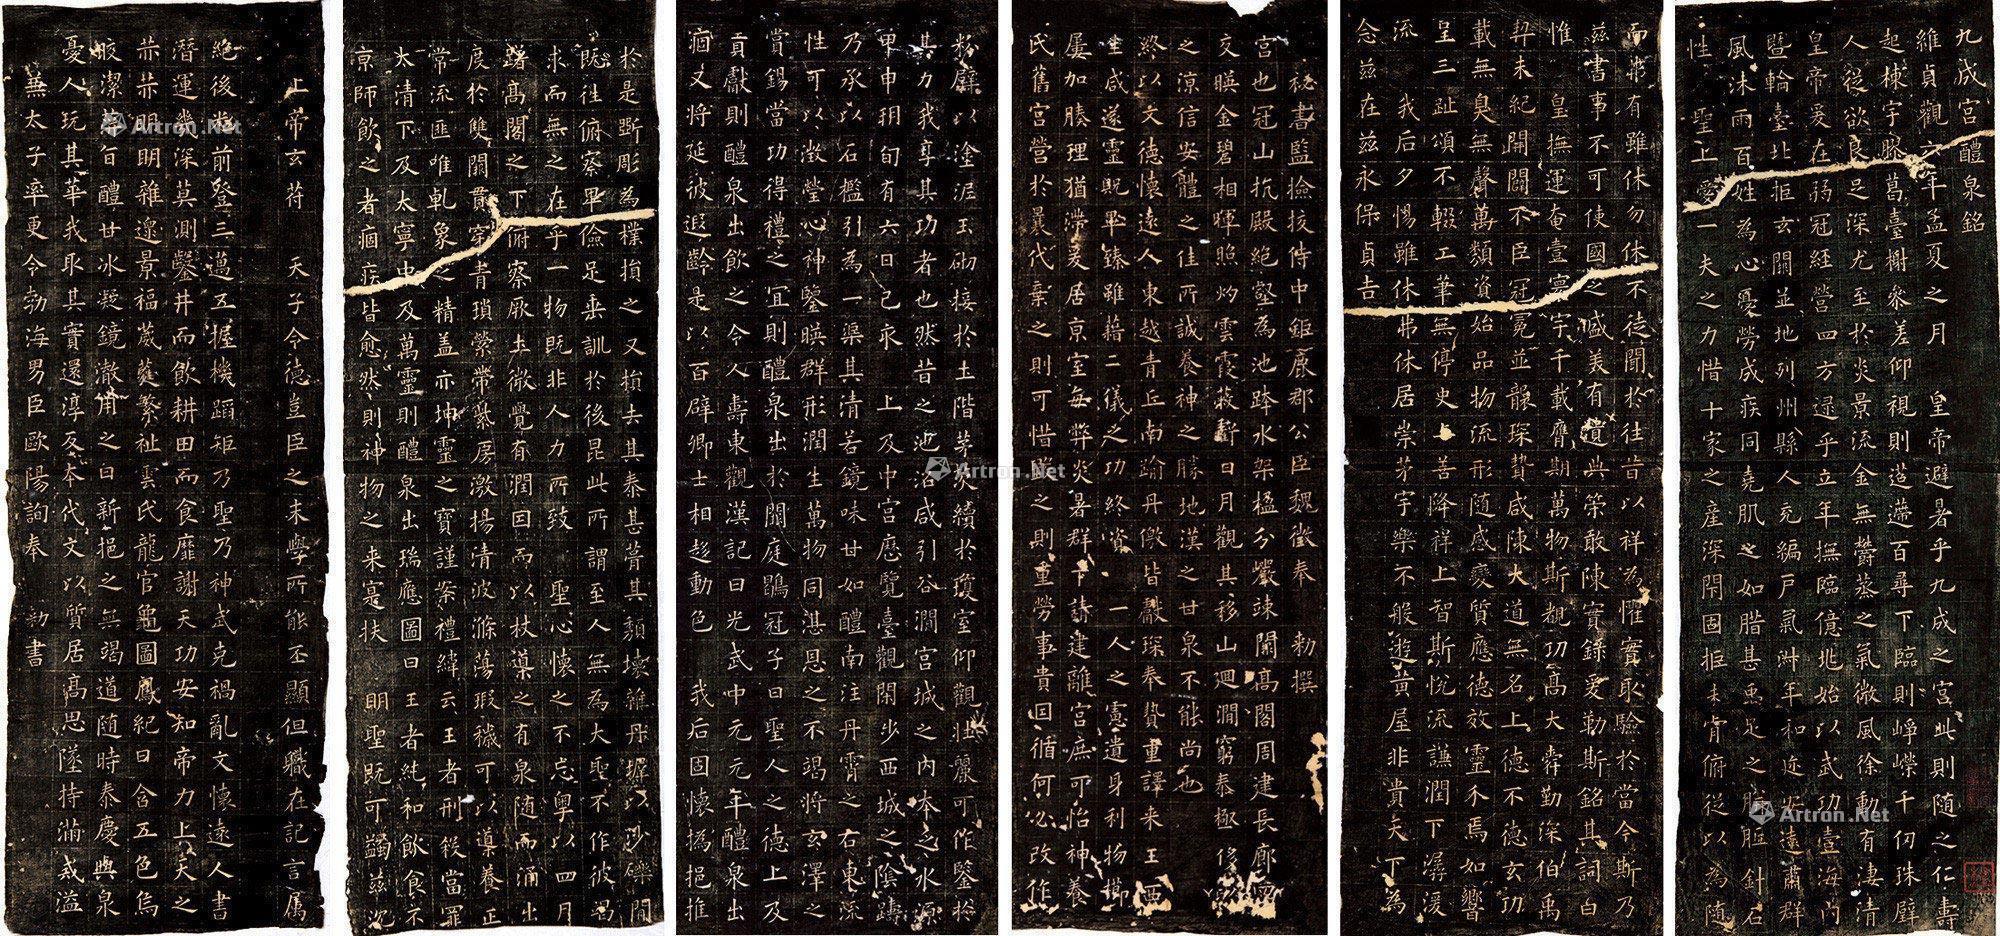 九成宮醴泉銘
維貞觀六年孟夏之月 皇帝避暑乎九成之宮此則隨之仁壽
起棟宇膠葛臺榭參差仰視則迢遰百尋下臨則崢嶸千仞珠壁
人從欲良足深尤至於炎景流金無鬱蒸之氣微風徐動有淒清
皇帝爰在弱冠經營四方逮乎立年撫臨億兆始以武功壹海內
暨輪臺北拒玄闕並地列州縣人充編戶氣淑年和迩安遠肅群
風沐雨百姓為心憂勞成疾同堯肌之如腊甚禹足之胼胝針石
性 聖上愛一夫之力惜十家之產深閇固拒未肯俯從以為隨
而弗有雖休勿休不徒聞於往昔以祥為懼實取驗於當今斯乃
茲書事不可使國之盛美有遺典策敢陳實錄爰勒斯銘其詞曰
惟 皇撫運奄壹寰宇千載膺期萬物斯覩功高大舜勤深伯禹
契末紀開闢不臣冠冕並襲琛贄咸陳大道無名上德不德玄功
載無臭無聲萬類資始品物流形隨感變質應德效靈不焉如響
呈三趾頌不輟工筆無停史上善降祥上智斯悅流謙潤下潺湲
流 我后夕惕雖休弗休居崇茅宇樂不般遊黃屋非貴天下為
念茲在茲永保貞吉
祕書監撿挍侍中鉅鹿郡公臣魏徵奉 勅撰
宮也冠山抗殿絕壑為池跨水架楹分巖竦闕高閣周建長廊四
交映金碧相暉照灼雲霞蔽虧日月觀其移山迴澗窮泰極侈以
之涼信安體之佳所誠養神之勝地漢之甘泉不能尚也
終以文德懷遠人東越青丘南踰丹徼皆獻琛奉贄重譯來王西
生咸遂靈貺畢臻雖藉二儀之功終資一人之慮遺身利物櫛
屢加腠理猶滯爰居京室每弊炎暑群下請建離宮庶可怡神養
氏舊宮營於曩代棄之則可惜毀之則重勞事貴因循何必改作
粉壁以塗泥玉砌接於土階茅茨續於瓊室仰觀壯麗可作鑒於
其力我享其功者也然昔之池沼咸引谷澗宮城之內本乏水源
甲申朔旬有六日己亥 上及中宮歷覽臺觀閑步西城之陰躊
乃承以石檻引為一渠其清若鏡味甘如醴南注丹霄之右東流
性可以澂瑩心神鑒映群形潤生萬物同湛恩之不竭將玄澤之
賞錫當功得禮之宜則醴泉出於闕庭鶡冠子曰聖人之德上及
貢獻則醴泉出飲之令人壽東觀漢記曰光武中元元年醴泉出
痼又將延彼遐齡是以百辟卿士相趍動色 我后固懷撝挹推
於是斲彫為樸損之又損去其泰甚葺其頹壞雜丹墀以沙礫間
既往俯察卑儉足垂訓於後昆此所謂至人無為大聖不作彼竭
求而無之在乎一物既非人力所致 聖心懷之不忘粵以四月
躇高閣之下俯察厥土微覺有潤因而以杖導之有泉隨而涌出
度於雙闕貫穿青瑣縈帶紫房激揚清波滌蕩瑕穢可以導養正
常流匪唯乾象之精蓋亦坤靈之寶謹案禮緯云王者刑殺當罪
太清下及太寧中及萬靈則醴泉出瑞應圖曰王者純和飲食不
京師飲之者痼疾皆愈然則神物之來寔扶 明聖既可蠲茲沉
上帝玄符 天子令德豈臣之末學所能丕顯但職在記言屬
絕後光前登三邁五握機蹈矩乃聖乃神武克禍亂文懷遠人書
潛運幾深莫測鑿井而飲耕田而食靡謝天功安知帝力上天之
赫赫明明雜遝景福葳蕤繁祉雲氏龍官龜圖鳳紀日含五色烏
皎潔蓱旨醴甘冰凝鏡澈用之日新挹之無竭道隨時泰慶與泉
憂人玩其華我取其實還淳反本代文以質居高思墜持滿戒溢
兼太子率更令勃海男臣歐陽詢奉 勅書
Artron.Net
Artron.Net
Artron.Net
Artron.Net